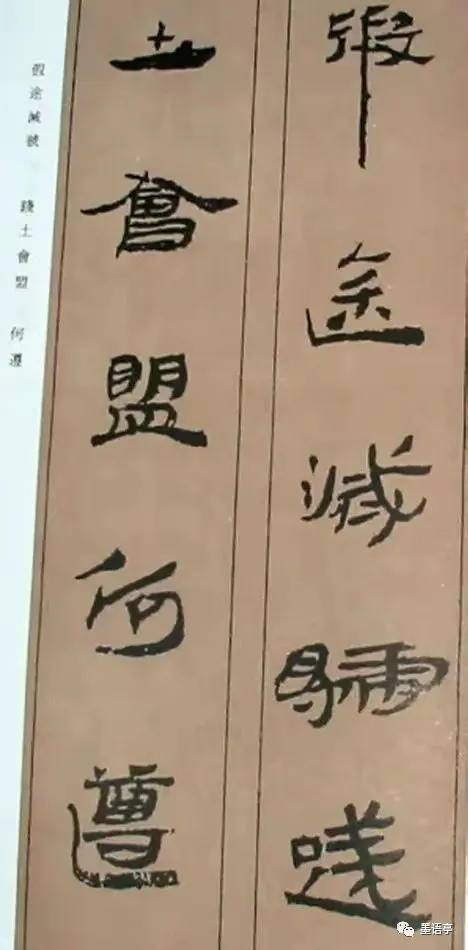 假途滅虢踐
土會盟何遵
假途滅虢 踐土會盟 何遵
墨语亭